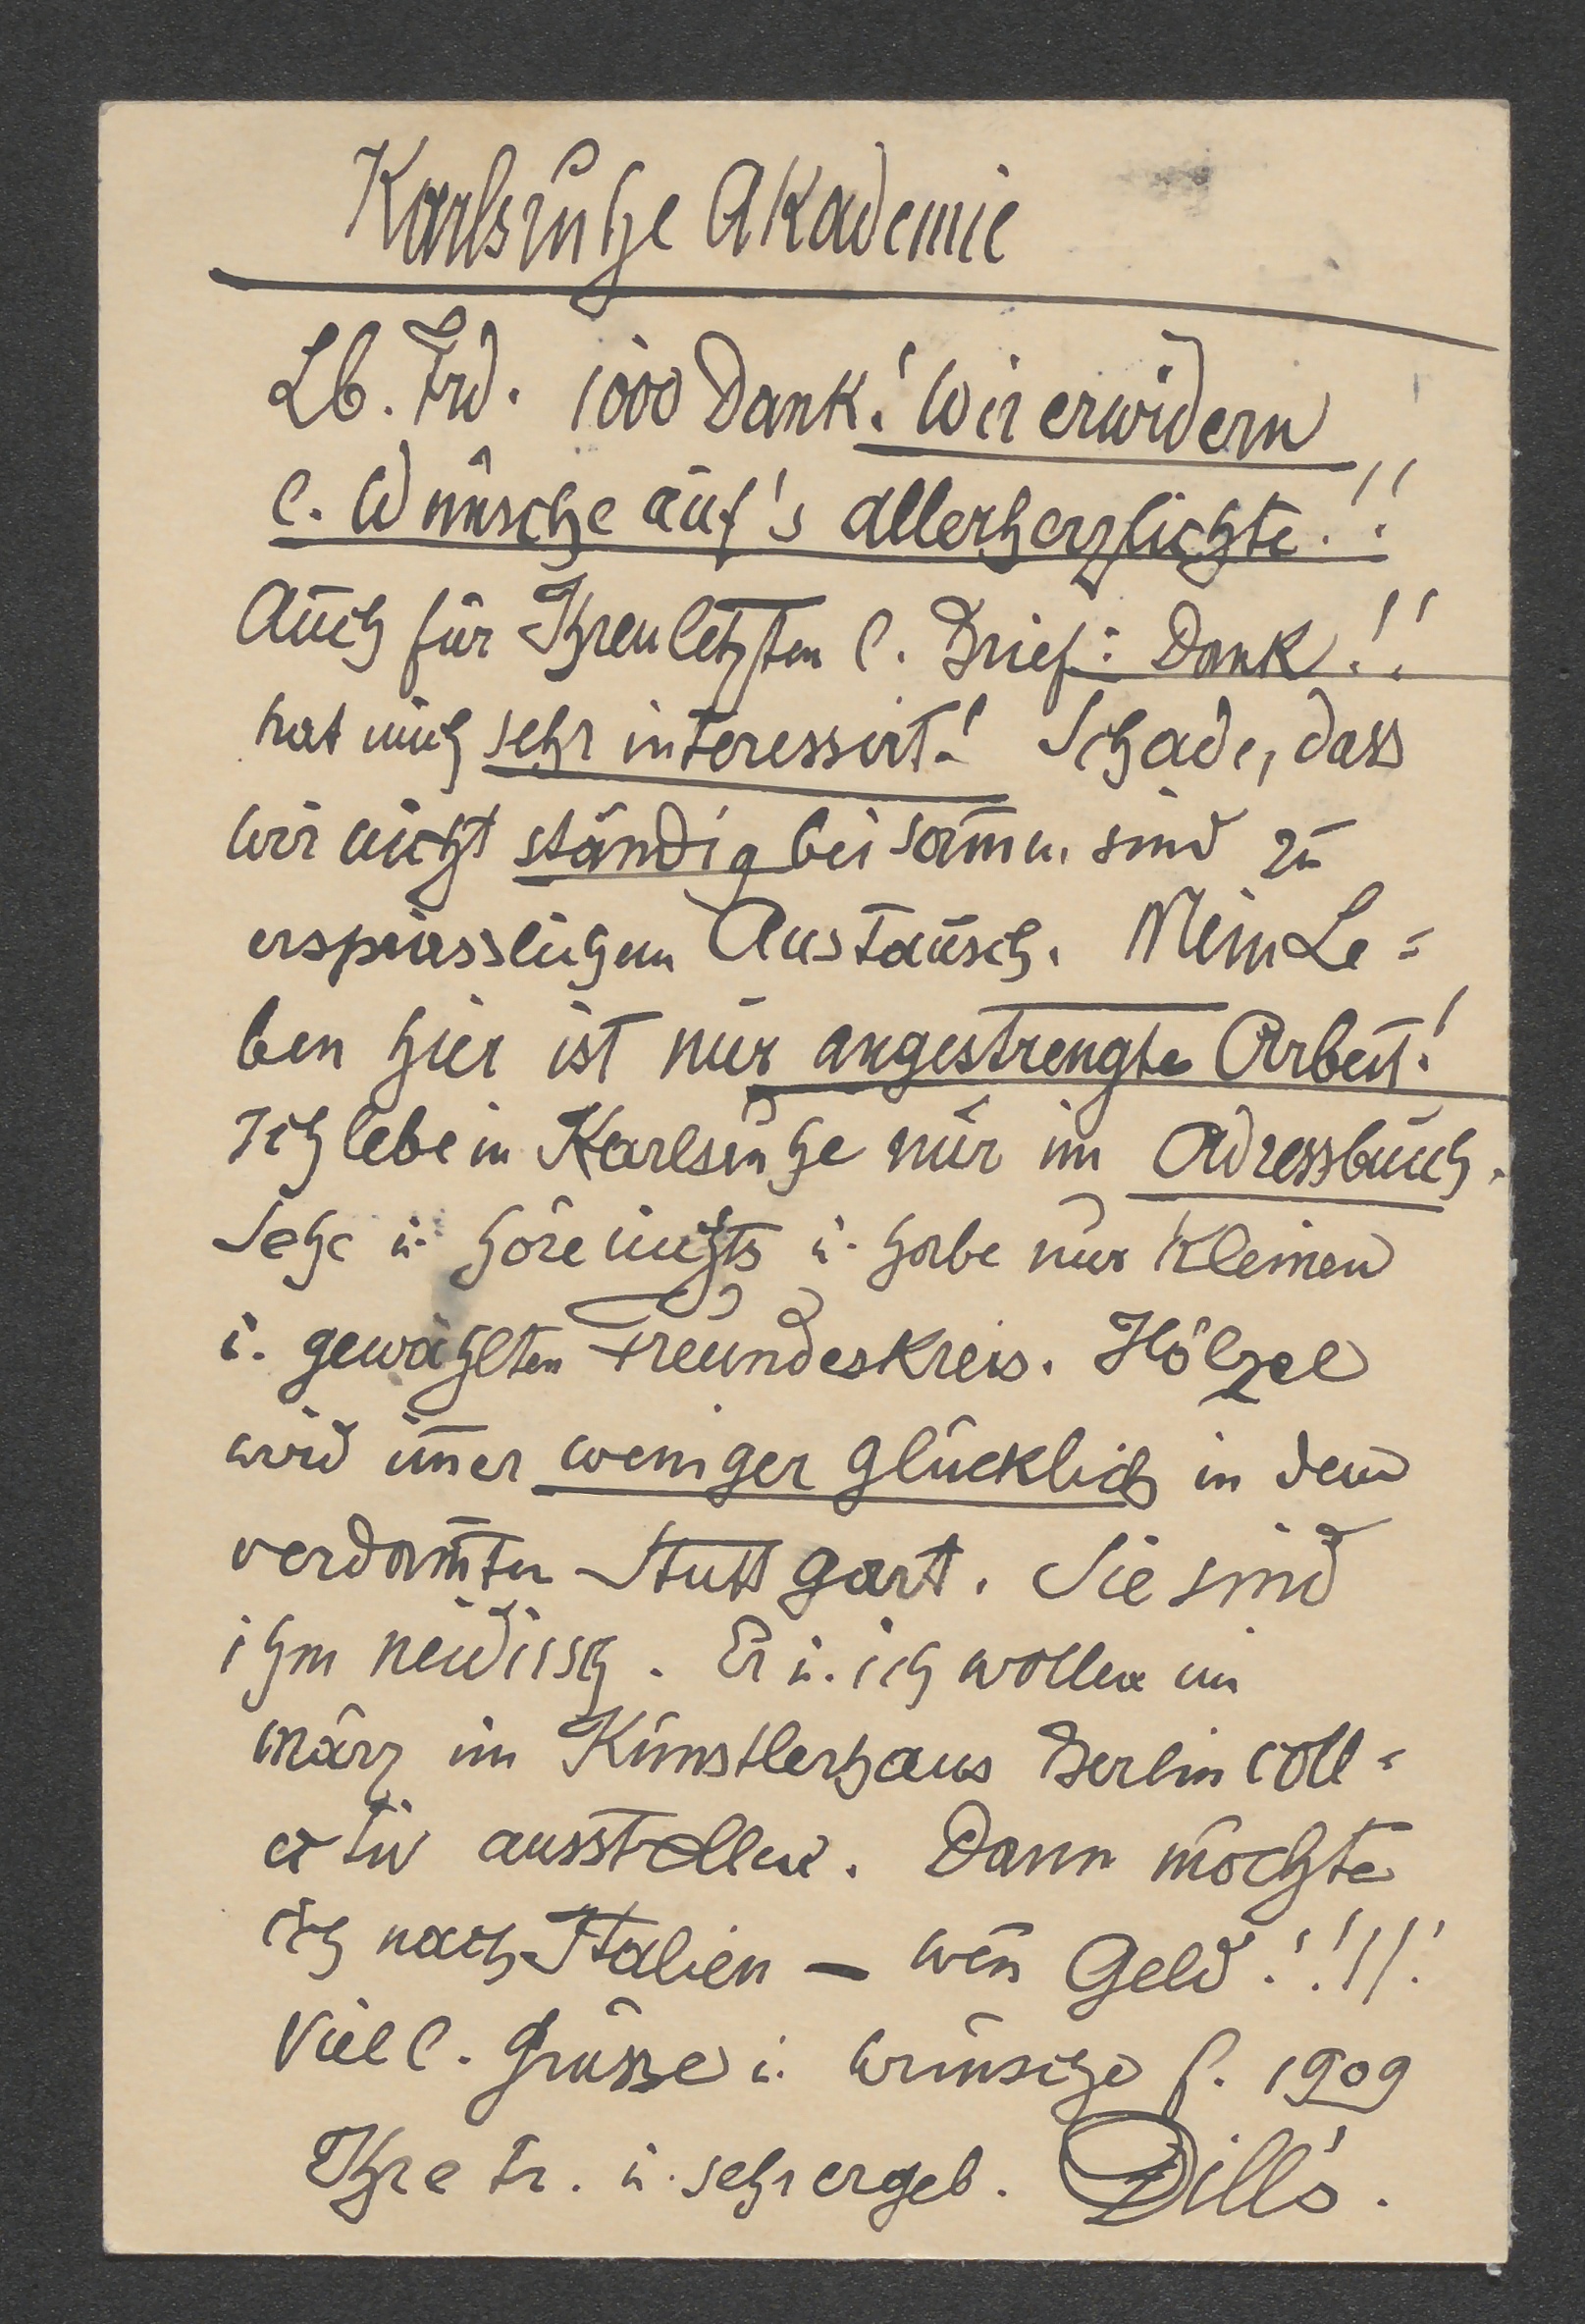 Karlsruhe Akademie
Lb. Frd. 1000 Dank! Wir erwidern
l. Wünsche auf's allerherzlichste!!
Auch für Ihren letzten l. Brief: Dank!!
hat mich sehr interessirt! Schade, dass
wir nicht ständig beisam̅en sind zu
erspriesslichem Austausch. Mein Le=
ben hier ist nur angestrengte Arbeit!
Ich lebe in Karlsruhe nur im Adressbuch.
Sehe u. höre nichts u. habe nur kleinen
u. gewählten Freundeskreis. Hölzel
wird im̅er weniger glücklich in dem
verdam̅ten Stuttgart. Sie sind
ihm neidisch. Er u. ich wollen im
März im Künstlerhaus Berlin coll=
ectiv ausstellen. Dann möchte
ich nach Italien — wen̅ Geld!!!!!
Viel l. Grüsse u. Wünsche f. 1909
Ihre tr. u. sehr ergeb. Dill's.